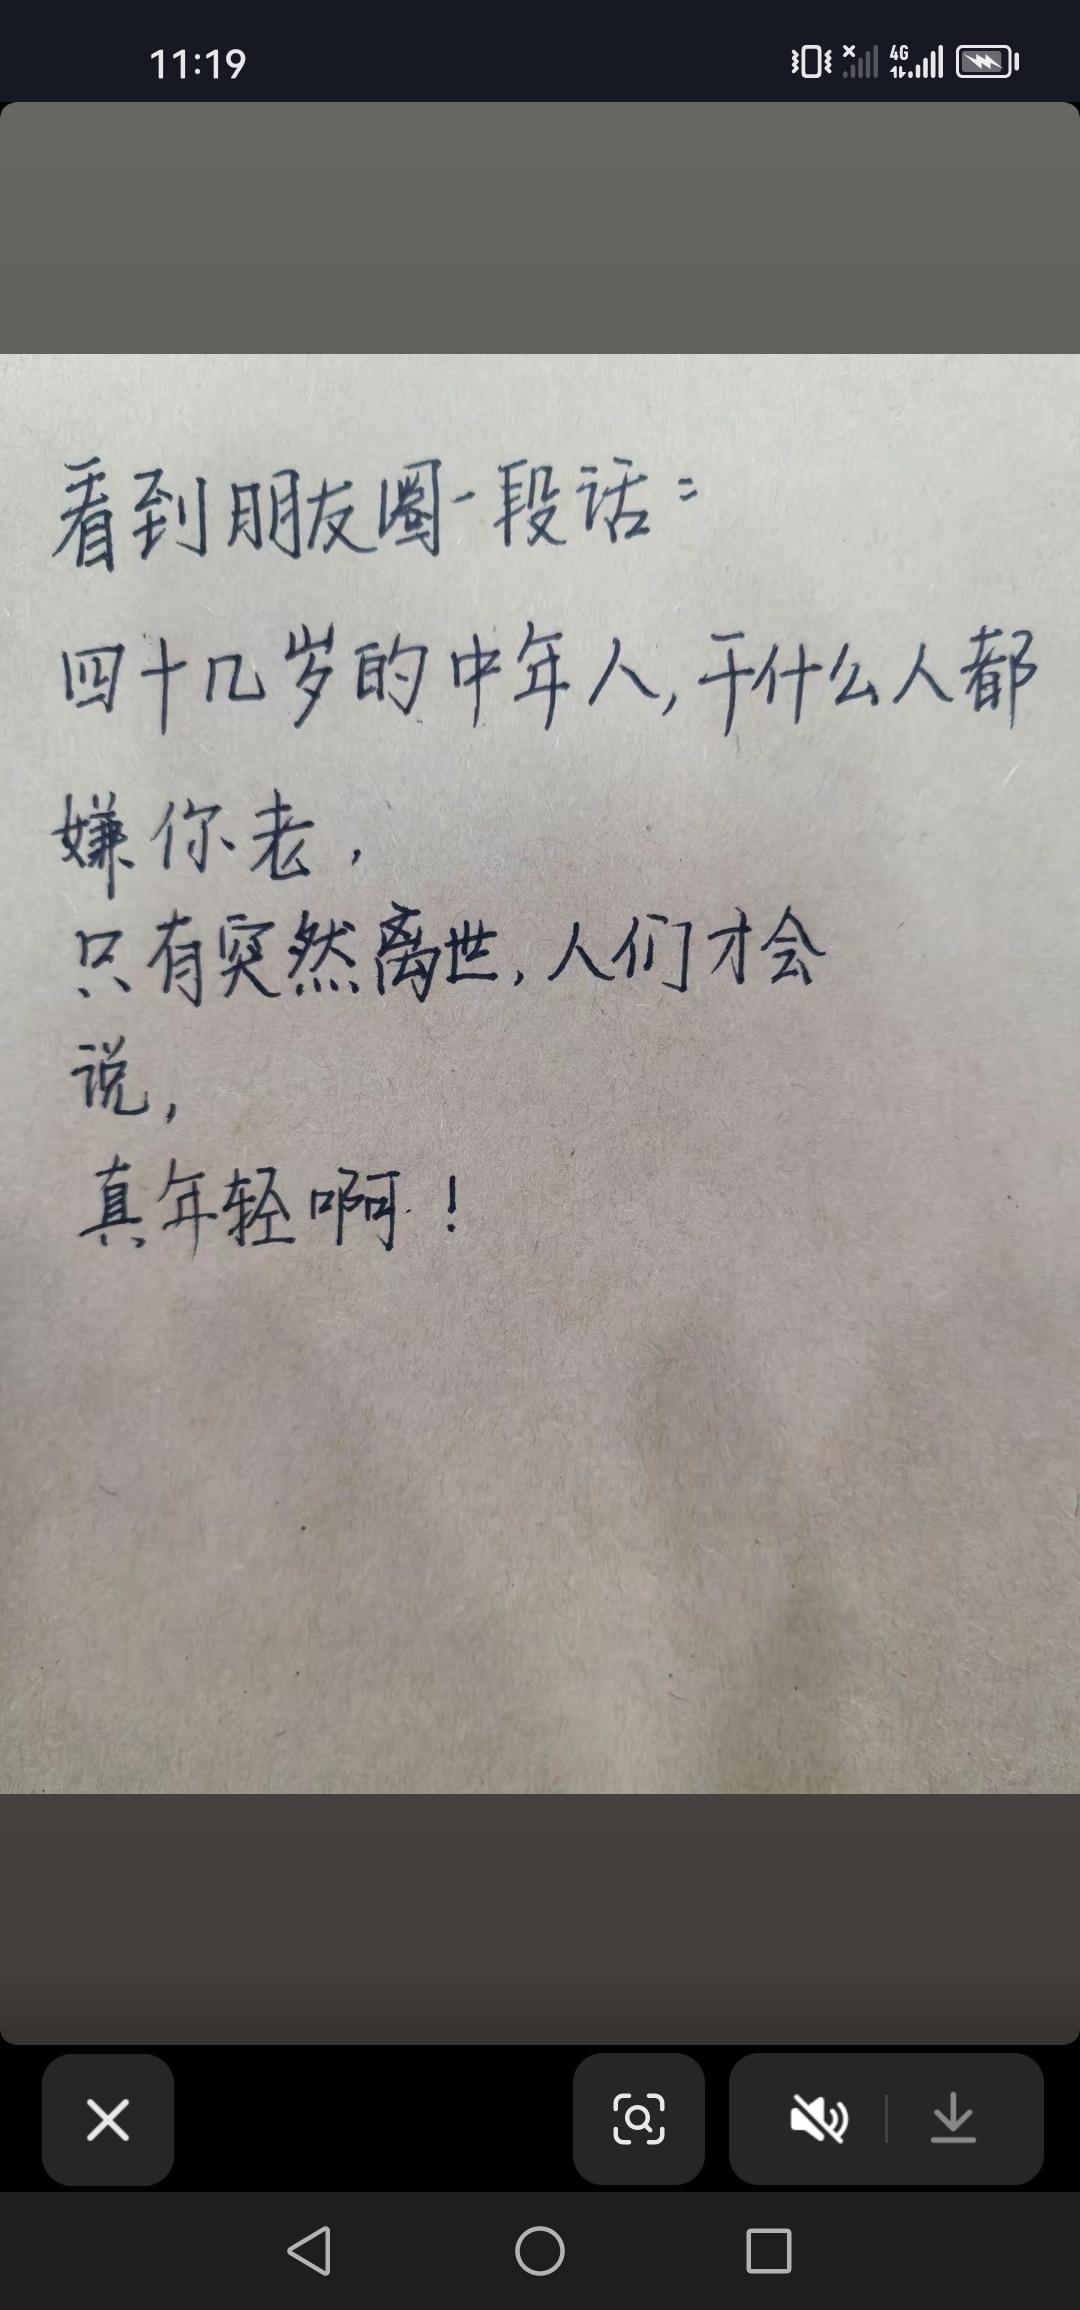 11:19
4G
看到朋友圈一段话:
四十几岁的中年人,干什么人都
嫌你老,
只有突然离世,人们才会
说,
真年轻啊!